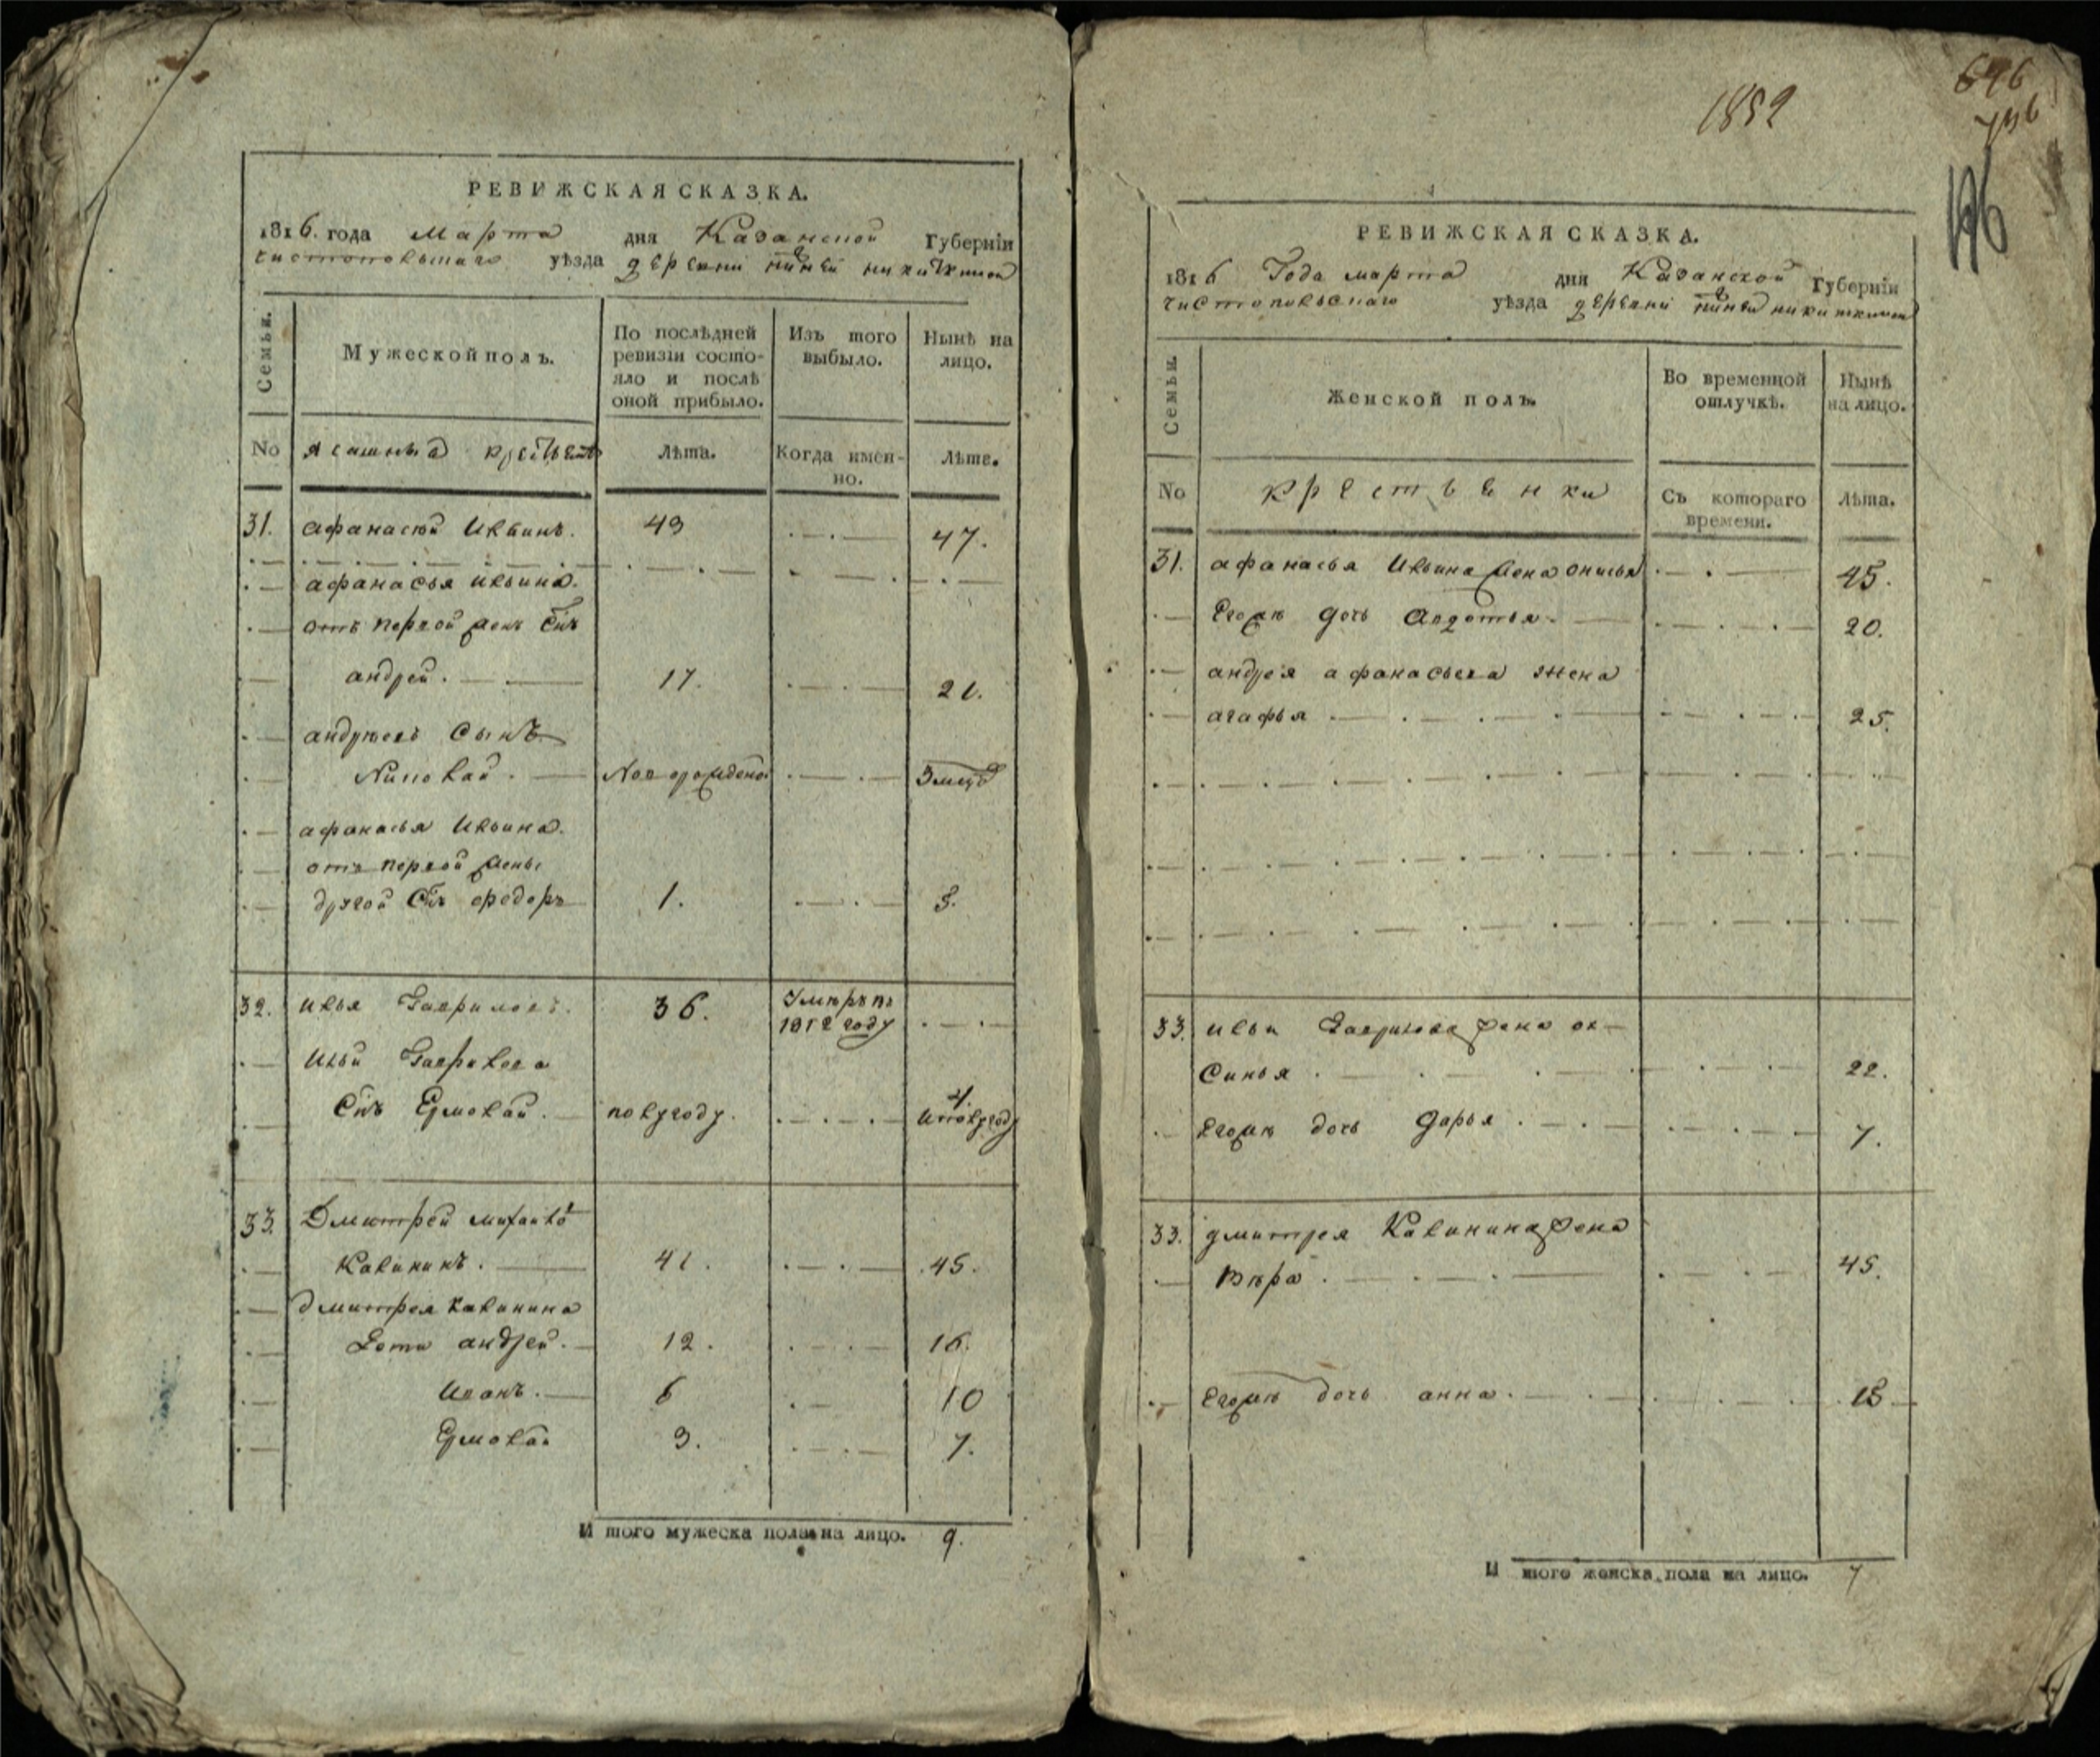 РЕВИЖСКАЯ СКАЗКА.
1816. года Марта дня Казанской Губерніи
чистопольскаго уѣзда деревни никиткиной
Семьи.
Мужеской полъ.
По послѣдней ревизіи состояло и послѣ оной прибыло.
Изъ того выбыло.
Нынѣ на лицо.
No
ясашныя
Лѣта.
Когда имен-но.
Лѣта.
31. афанасей Ильинъ. 43 47.
афанасья ильина.
отъ первой женъ Снъ
андрей. 17. 21.
андрѣевъ Сынъ
Николай. Новорожденой 3 мца
афанасья Ильина.
отъ первой жены
другой Снъ федоръ 1. 5.
32. илья Гавриловъ. 36. Умѣръ въ
1812 году
Ильи Гаврилова
Снъ Ермолай. полугоду. 4.
иполугоду
33. Дмитрей михайло
Калининъ. 41. 45.
дмитрея калинина
Дети андрей. 12. 16.
Иванъ. 6 10
Ермолай 3. 7.
И того мужеска пола на лицо. 9.
1852
696
736
196
РЕВИЖСКАЯ СКАЗКА.
1816 Года марта дня Казанской Губерніи
чистопольскаго уѣзда деревни никиткиной
Семьи.
Женской полъ.
Во временной отлучкѣ.
Нынѣ на лицо.
No
крестьянки
Съ котораго времени.
Лѣта.
31. афанасья Ильина жена онисья 45.
Егожъ дочь Авдотья 20.
андрея афанасьева жена
агафья 25.
33. ильи Гаврилова жена ак-
Синья 22.
Егожъ дочь Дарья 7.
33. дмитрея Калинина жена
Вѣра 45.
Егожъ дочь анна. 15
И того женска пола на лицо. 7